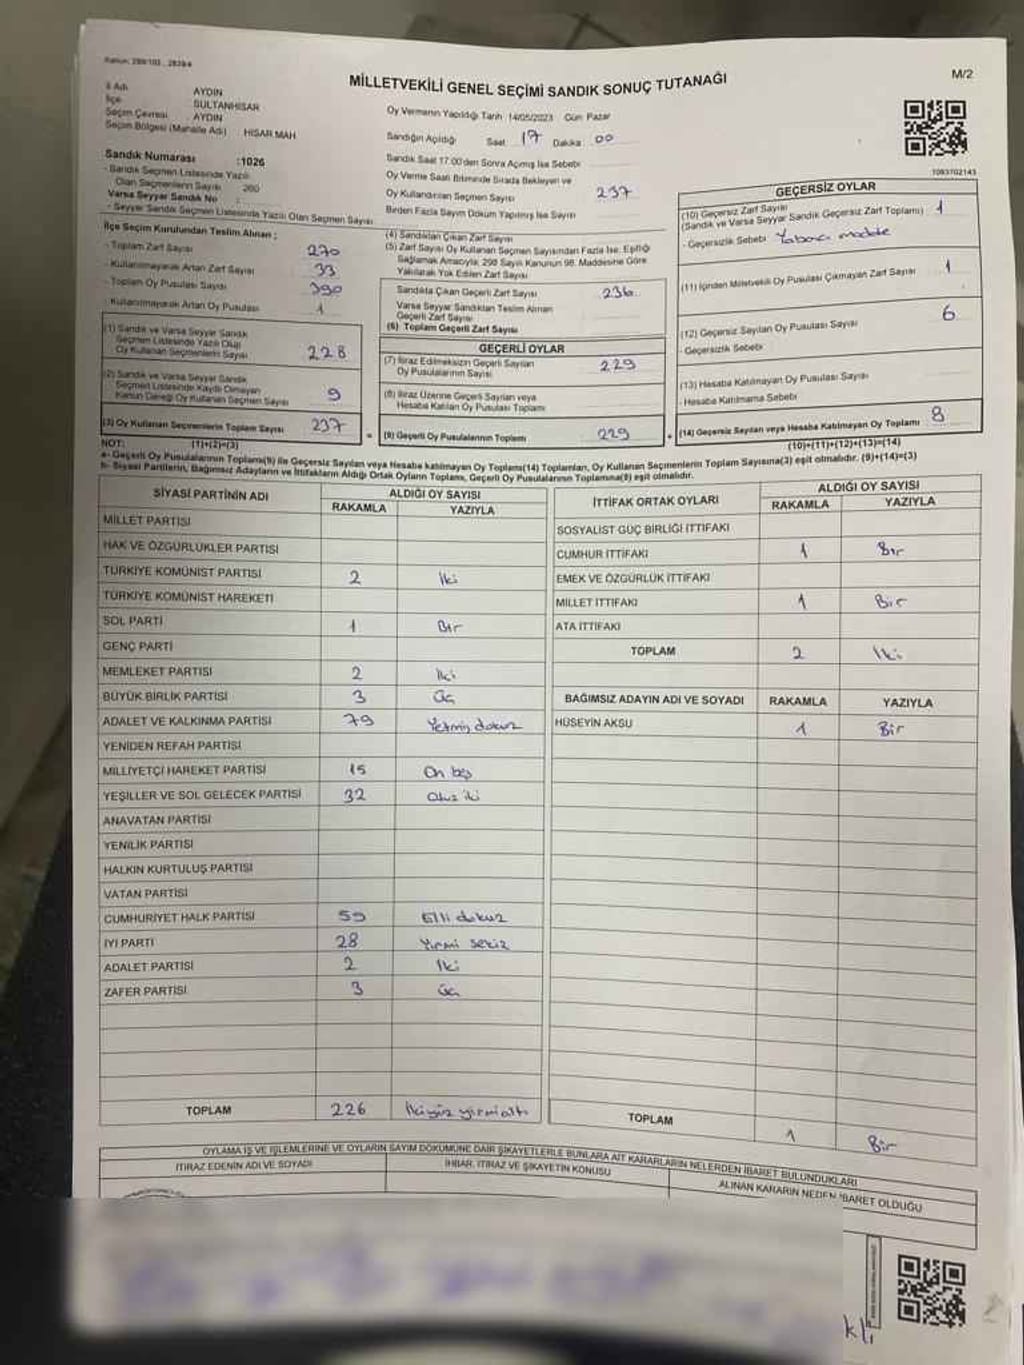 Kanun: 298/103 , 2839/4
MİLLETVEKİLİ GENEL SEÇİMİ SANDIK SONUÇ TUTANAĞI
M/2
İl Adı AYDIN
İlçe SULTANHİSAR
Seçim Çevresi AYDIN
Seçim Bölgesi (Mahalle Adı) HİSAR MAH
Oy Vermenin Yapıldığı Tarih 14/05/2023 Gün: Pazar
Sandığın Açıldığı Saat 17 Dakika 00
Sandık Numarası :1026
- Sandık Seçmen Listesinde Yazılı
Olan Seçmenlerin Sayısı 260
Varsa Seyyar Sandık No :
- Seyyar Sandık Seçmen Listesinde Yazılı Olan Seçmen Sayısı
Sandık Saat 17:00'den Sonra Açılmış İse Sebebi
Oy Verme Saati Bitiminde Sırada Bekleyen ve
Oy Kullandırılan Seçmen Sayısı 237
Birden Fazla Sayım Döküm Yapılmış İse Sayısı
1093702143
İlçe Seçim Kurulundan Teslim Alınan ;
- Toplam Zarf Sayısı 270
- Kullanılmayarak Artan Zarf Sayısı 33
- Toplam Oy Pusulası Sayısı 390
- Kullanılmayarak Artan Oy Pusulası 1
(1) Sandık ve Varsa Seyyar Sandık
Seçmen Listesinde Yazılı Olup
Oy Kullanan Seçmenlerin Sayısı 228
(2) Sandık ve Varsa Seyyar Sandık
Seçmen Listesinde Kaydı Olmayan
Kanun Gereği Oy Kullanan Seçmen Sayısı 9
(3) Oy Kullanan Seçmenlerin Toplam Sayısı 237
(4) Sandıktan Çıkan Zarf Sayısı
(5) Zarf Sayısı Oy Kullanan Seçmen Sayısından Fazla İse, Eşitliği
Sağlamak Amacıyla, 298 Sayılı Kanunun 98. Maddesine Göre
Yakılarak Yok Edilen Zarf Sayısı
Sandıkta Çıkan Geçerli Zarf Sayısı 236
Varsa Seyyar Sandıktan Teslim Alınan
Geçerli Zarf Sayısı
(6) Toplam Geçerli Zarf Sayısı
GEÇERLİ OYLAR
(7) İtiraz Edilmeksizin Geçerli Sayılan
Oy Pusulalarının Sayısı 229
(8) İtiraz Üzerine Geçerli Sayılan veya
Hesaba Katılan Oy Pusulası Toplamı
= (9) Geçerli Oy Pusulalarının Toplamı 229
GEÇERSİZ OYLAR
(10) Geçersiz Zarf Sayısı 1
(Sandık ve Varsa Seyyar Sandık Geçersiz Zarf Toplamı)
- Geçersizlik Sebebi Yabancı madde
(11) İçinden Milletvekili Oy Pusulası Çıkmayan Zarf Sayısı 1
(12) Geçersiz Sayılan Oy Pusulası Sayısı 6
- Geçersizlik Sebebi
(13) Hesaba Katılmayan Oy Pusulası Sayısı
- Hesaba Katılmama Sebebi
+ (14) Geçersiz Sayılan veya Hesaba Katılmayan Oy Toplamı 8
NOT: (1)+(2)=(3)
(10)+(11)+(12)+(13)=(14)
a- Geçerli Oy Pusulalarının Toplamı(9) ile Geçersiz Sayılan veya Hesaba katılmayan Oy Toplamı(14) Toplamları, Oy Kullanan Seçmenlerin Toplam Sayısına(3) eşit olmalıdır. (9)+(14)=(3)
b- Siyasi Partilerin, Bağımsız Adayların ve İttifakların Aldığı Ortak Oyların Toplamı, Geçerli Oy Pusulalarının Toplamına(9) eşit olmalıdır.
SİYASİ PARTİNİN ADI ALDIĞI OY SAYISI
RAKAMLA YAZIYLA
MİLLET PARTİSİ
HAK VE ÖZGÜRLÜKLER PARTİSİ
TÜRKİYE KOMÜNİST PARTİSİ 2 İki
TÜRKİYE KOMÜNİST HAREKETİ
SOL PARTİ 1 Bir
GENÇ PARTİ
MEMLEKET PARTİSİ 2 İki
BÜYÜK BİRLİK PARTİSİ 3 Üç
ADALET VE KALKINMA PARTİSİ 79 Yetmiş dokuz
YENİDEN REFAH PARTİSİ
MİLLİYETÇİ HAREKET PARTİSİ 15 On beş
YEŞİLLER VE SOL GELECEK PARTİSİ 32 Otuz iki
ANAVATAN PARTİSİ
YENİLİK PARTİSİ
HALKIN KURTULUŞ PARTİSİ
VATAN PARTİSİ
CUMHURİYET HALK PARTİSİ 59 Elli dokuz
İYİ PARTİ 28 Yirmi sekiz
ADALET PARTİSİ 2 İki
ZAFER PARTİSİ 3 Üç
TOPLAM 226 İkiyüz yirmialtı
İTTİFAK ORTAK OYLARI ALDIĞI OY SAYISI
RAKAMLA YAZIYLA
SOSYALİST GÜÇ BİRLİĞİ İTTİFAKI
CUMHUR İTTİFAKI 1 Bir
EMEK VE ÖZGÜRLÜK İTTİFAKI
MİLLET İTTİFAKI 1 Bir
ATA İTTİFAKI
TOPLAM 2 İki
BAĞIMSIZ ADAYIN ADI VE SOYADI RAKAMLA YAZIYLA
HÜSEYİN AKSU 1 Bir
TOPLAM 1 Bir
OYLAMA İŞ VE İŞLEMLERİNE VE OYLARIN SAYIM DÖKÜMÜNE DAİR ŞİKAYETLERLE BUNLARA AİT KARARLARIN NELERDEN İBARET BULUNDUKLARI
İTİRAZ EDENİN ADI VE SOYADI
İHBAR, İTİRAZ VE ŞİKAYETİN KONUSU
ALINAN KARARIN NEDEN İBARET OLDUĞU